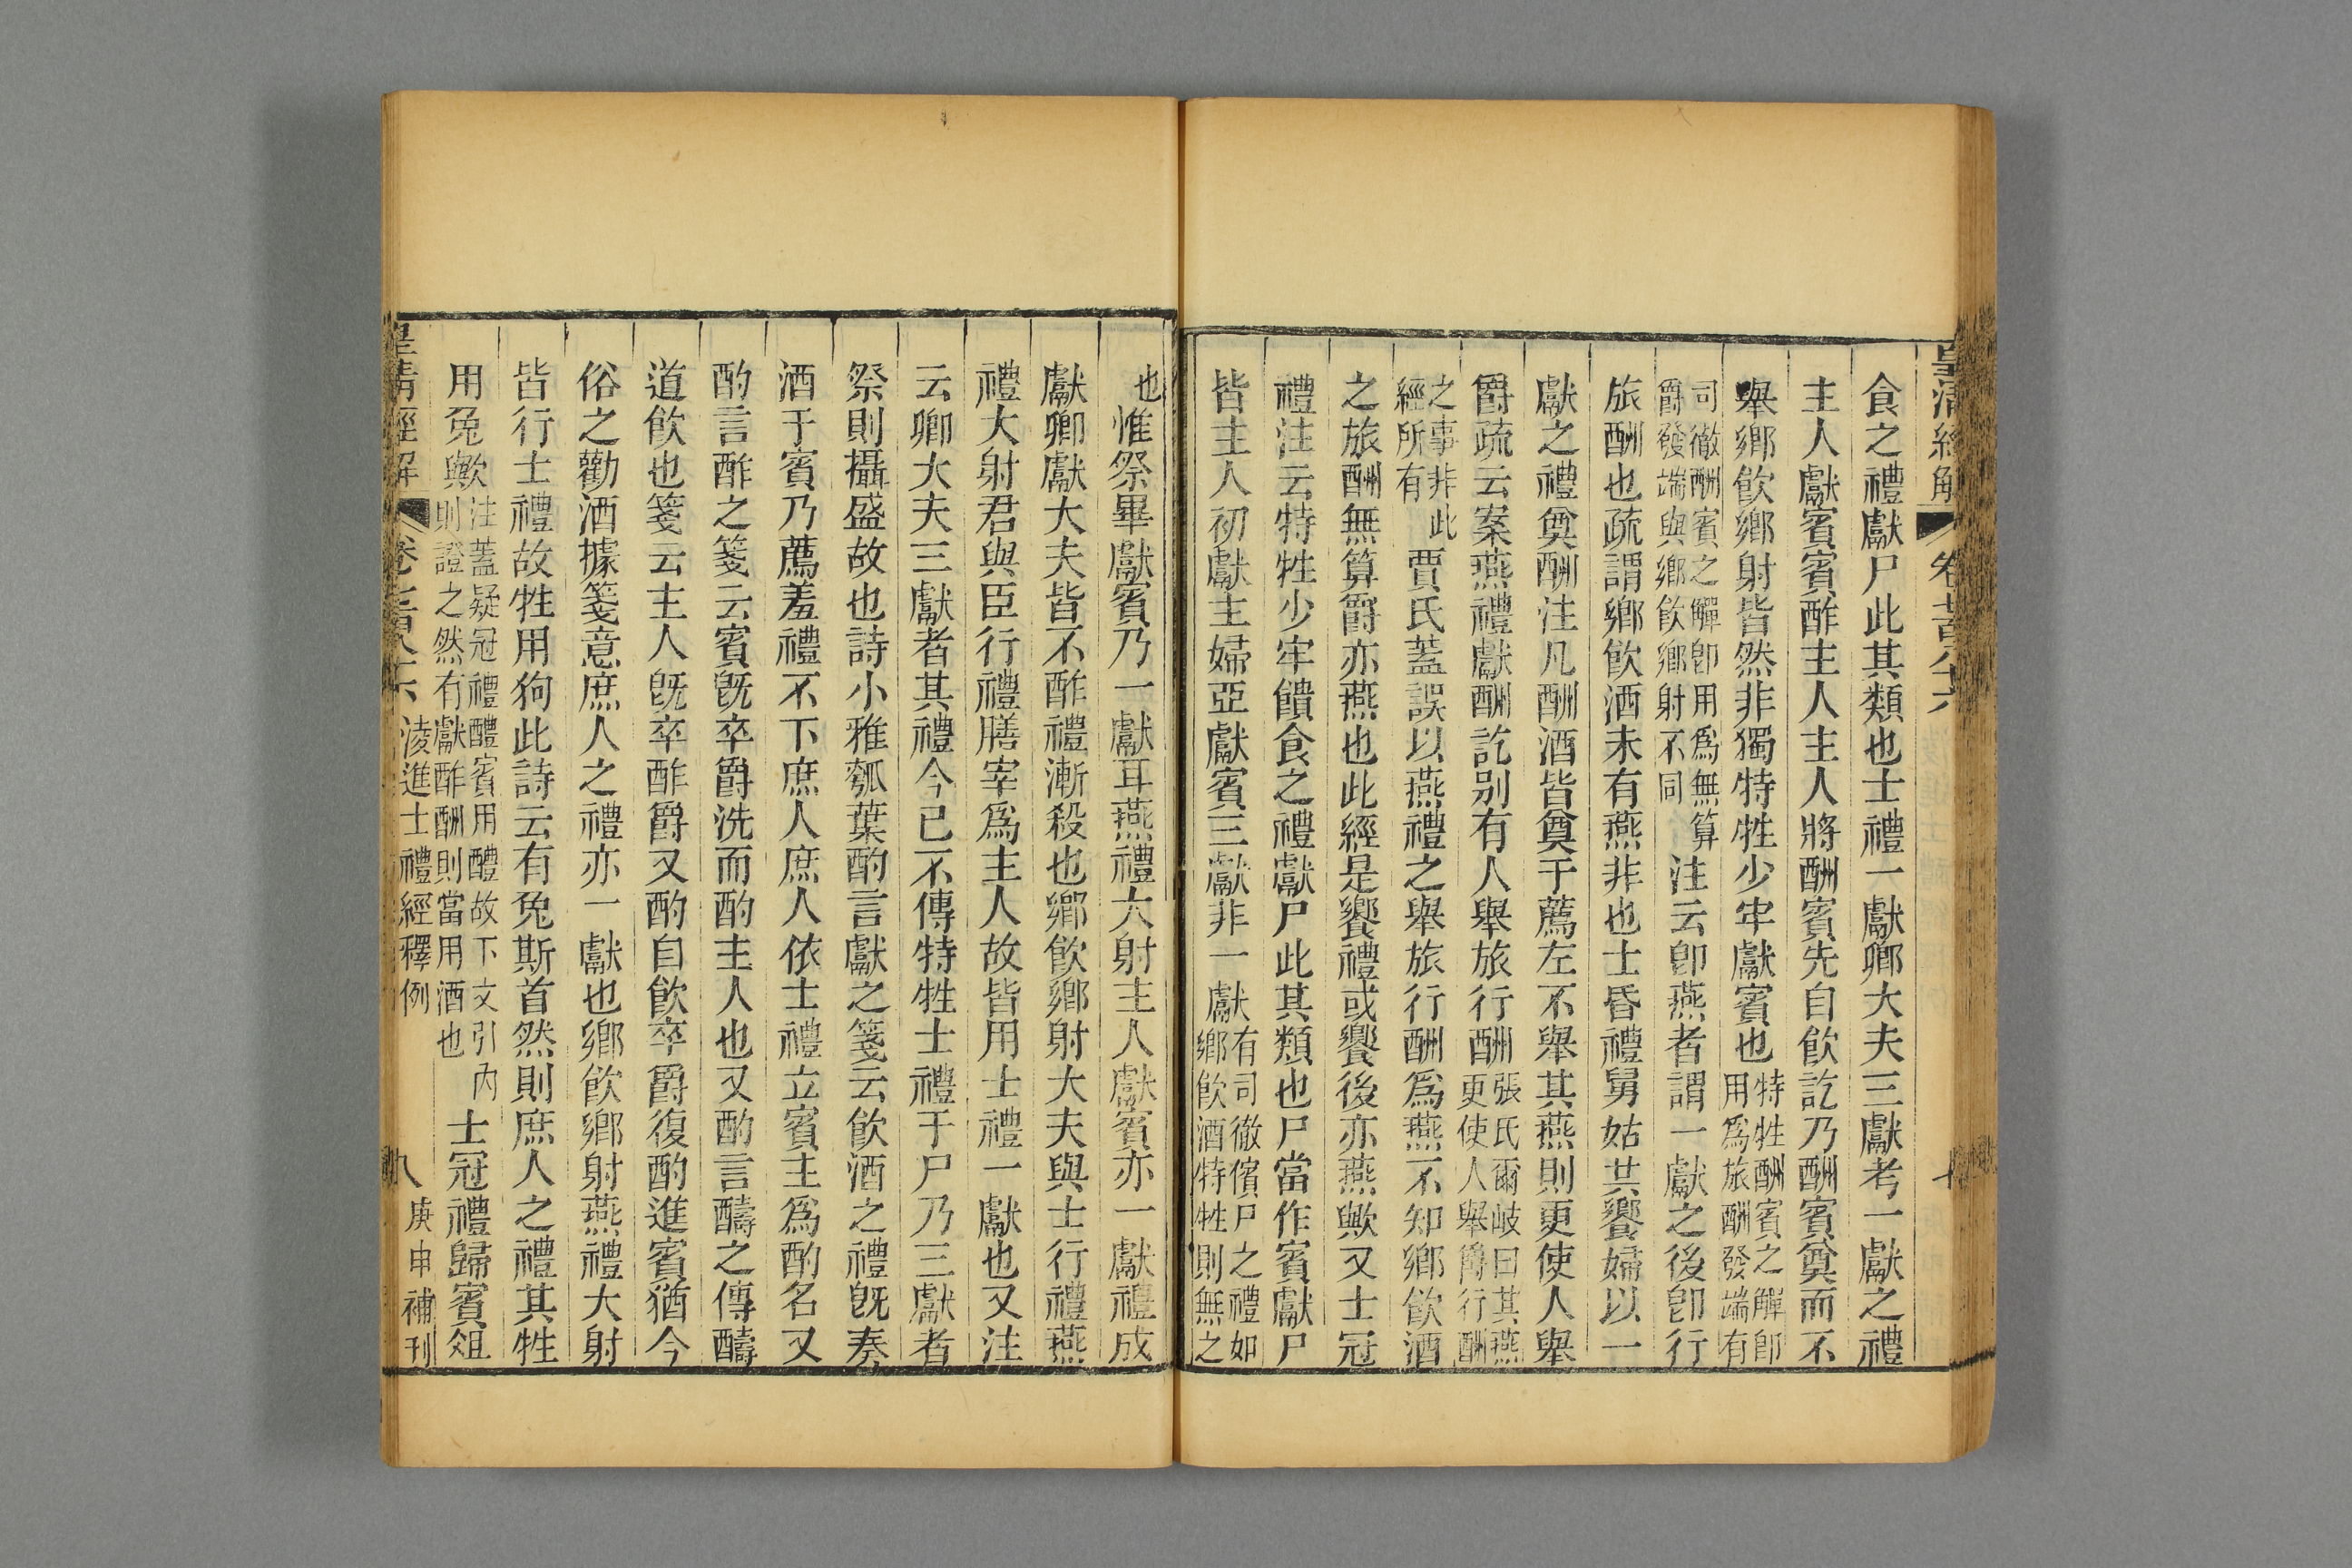 皇清經解 卷七百八十六
食之禮獻尸此其類也士禮一獻卿大夫三獻考一獻之禮
主人獻賓賓酢主人主人將酬賓先自飮訖乃酬賓賓奠而不
舉鄉飮鄉射皆然非獨特牲少牢獻賓也特牲酬賓之觶卽用爲旅酬發端有
司徹酬賓之觶卽用爲無算爵發端與鄉飮鄉射不同注云卽燕者謂一獻之後卽行
旅酬也疏謂鄉飮酒未有燕非也士昏禮舅姑共饗婦以一
獻之禮奠酬注凡酬酒皆奠于薦左不舉其燕則更使人舉
爵疏云案燕禮獻酬訖别有人舉旅行酬張氏爾岐曰其燕更使人舉爵行酬
之事非此經所有賈氏蓋誤以燕禮之舉旅行酬爲燕不知鄉飮酒
之旅酬無算爵亦燕也此經是饗禮或饗後亦燕歟又士冠
禮注云特牲少牢饋食之禮獻尸此其類也尸當作賓獻尸
皆主人初獻主婦亞獻賓三獻非一獻有司徹儐尸之禮如鄉飮酒特牲則無之
也惟祭畢獻賓乃一獻耳燕禮大射主人獻賓亦一獻禮成
獻卿獻大夫皆不酢禮漸殺也鄉飮鄉射大夫與士行禮燕
禮大射君與臣行禮膳宰爲主人故皆用士禮一獻也又注
云卿大夫三獻者其禮今已不傳特牲士禮于尸乃三獻者
祭則攝盛故也詩小雅瓠葉酌言獻之箋云飮酒之禮旣奏
酒于賓乃薦羞禮不下庶人庶人依士禮立賓主爲酌名又
酌言酢之箋云賓旣卒爵洗而酌主人也又酌言醻之傳醻
道飮也箋云主人旣卒酢爵又酌自飮卒爵復酌進賓猶今
俗之勸酒據箋意庶人之禮亦一獻也鄉飮鄉射燕禮大射
皆行士禮故牲用狗此詩云有兔斯首然則庶人之禮其牲
用兔歟注蓋疑冠禮醴賓用醴故下文引内則證之然有獻酢酬則當用酒也士冠禮歸賓俎
皇清經解 卷七百八十六 淩進士禮經釋例 八 庚申補刊